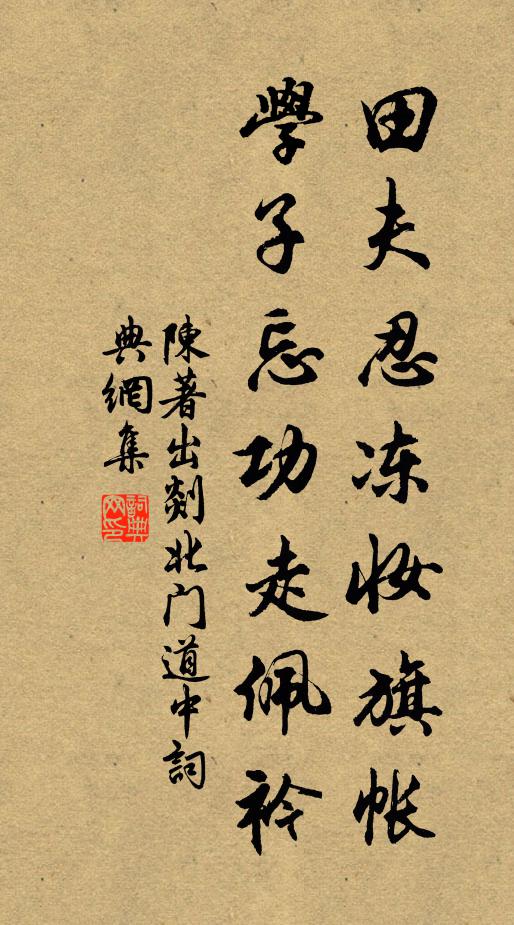 田夫忍冻妆旗帐
學子忘功走佩衿
陳著出剡北门道中詞
典網集
詞典网印